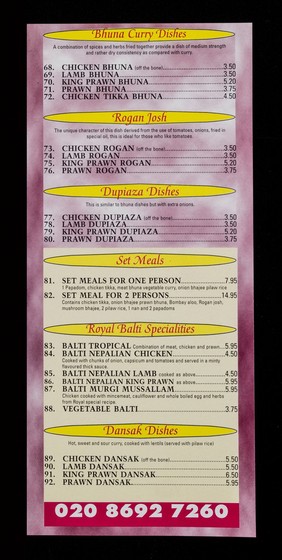 Bhuna Curry Dishes
A combination of spices and herbs fried together provide a dish of medium strength
and rather dry consistency as compared with curry.
68. CHICKEN BHUNA (off the bone) 3.50
69. LAMB BHUNA 3.50
70. KING PRAWN BHUNA 5.20
71. PRAWN BHUNA 3.75
72. CHICKEN TIKKA BHUNA 4.50
Rogan Josh
The unique character of this dish derived from the use of tomatoes, onions, fried in
special oil, this is ideal for those who like tomatoes.
73. CHICKEN ROGAN (off the bone) 3.50
74. LAMB ROGAN 3.50
75. KING PRAWN ROGAN 5.20
76. PRAWN ROGAN 3.75
Dupiaza Dishes
This is similar to bhuna dishes but with extra onions.
77. CHICKEN DUPIAZA (off the bone) 3.50
78. LAMB DUPIAZA 3.50
79. KING PRAWN DUPIAZA 5.20
80. PRAWN DUPIAZA 3.75
Set Meals
81. SET MEALS FOR ONE PERSON 7.95
1 Papadom, chicken tikka, meat bhuna vegetable curry, onion bhajee pilaw rice.
82. SET MEAL FOR 2 PERSONS 14.95
Contains chicken tikka, onion bhajee prawn bhuna, Bombay aloo, Rogan josh,
mushroom bhajee, 2 pilaw rice, 1 nan and 2 papadoms
Royal Balti Specialities
83. BALTI TROPICAL Combination of meat, chicken and prawn 5.95
84. BALTI NEPALIAN CHICKEN 4.50
Cooked with chunks of onion, capsicum and tomatoes and served in a minty
flavoured thick sauce.
85. BALTI NEPALIAN LAMB cooked as above 4.50
86. BALTI NEPALIAN KING PRAWN as above 5.95
87. BALTI MURGI MUSSALLAM 5.95
Chicken cooked with mincemeat, cauliflower and whole boiled egg and herbs
from Royal special recipe.
88. VEGETABLE BALTI 3.75
Dansak Dishes
Hot, sweet and sour curry, cooked with lentils (served with pilaw rice)
89. CHICKEN DANSAK (off the bone) 5.50
90. LAMB DANSAK 5.50
91. KING PRAWN DANSAK 6.50
92. PRAWN DANSAK 5.95
020 8692 7260